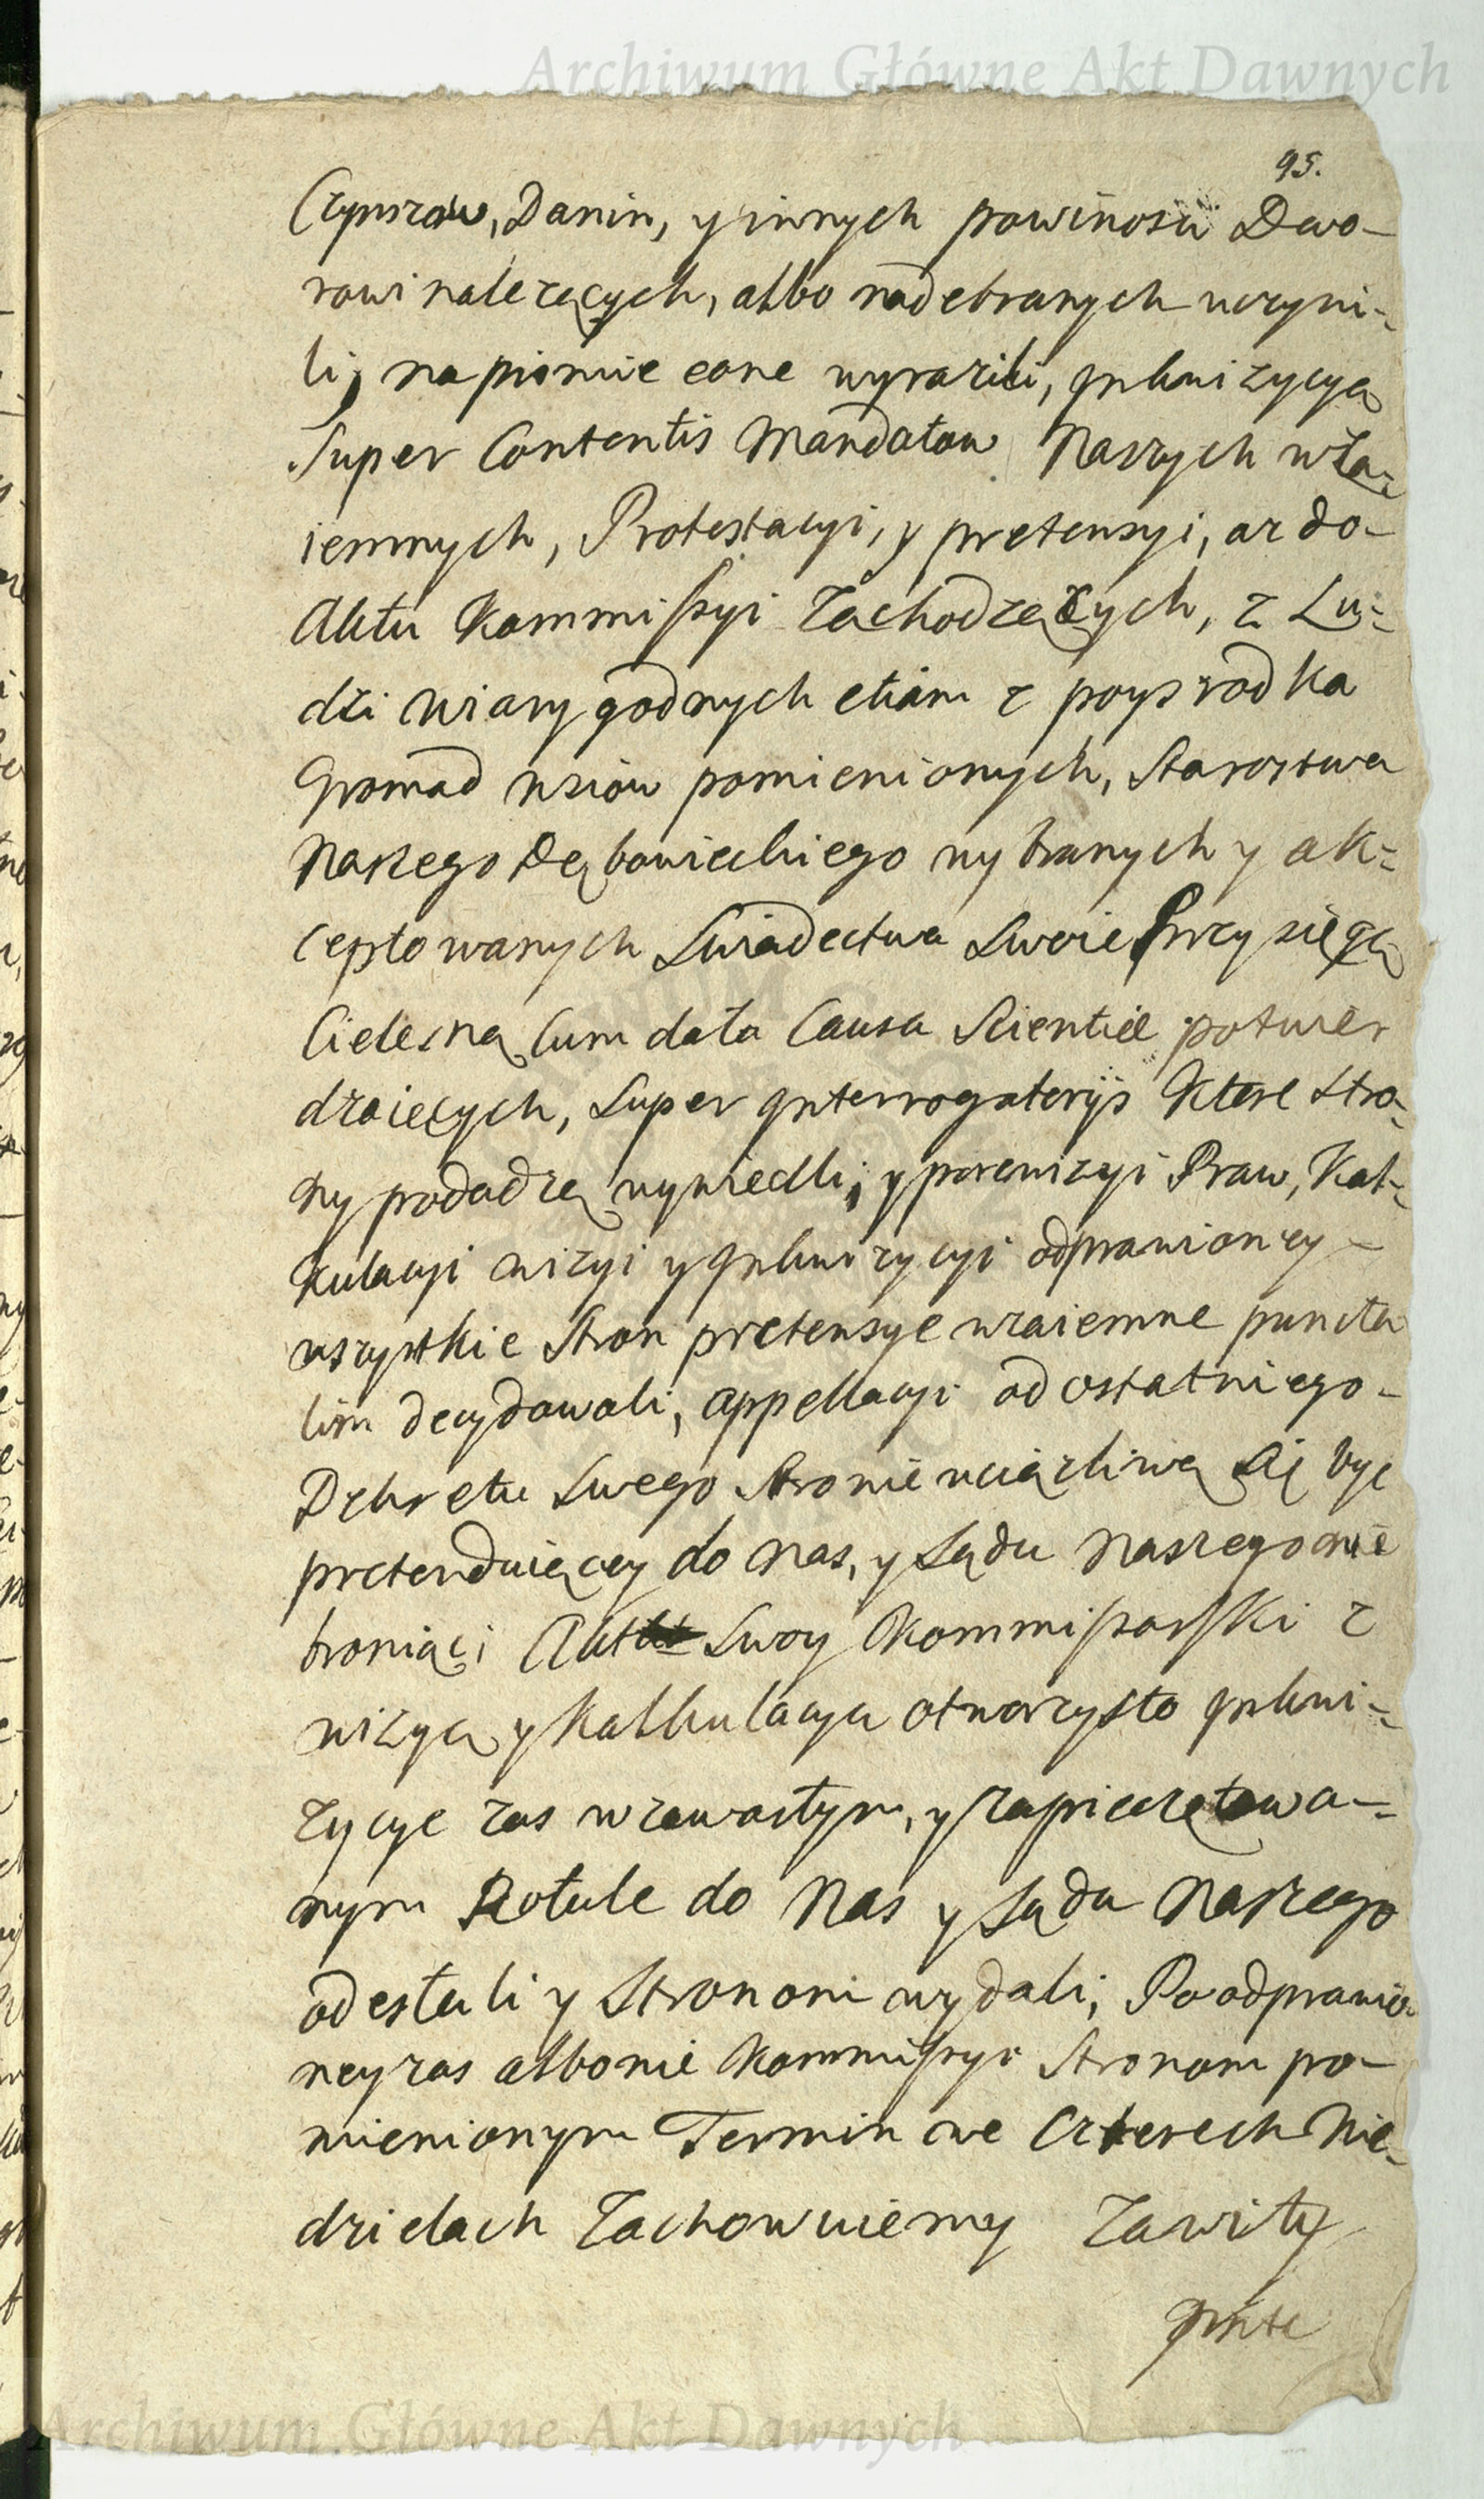 Archiwum Główne Akt Dawnych
95.
Czynszow, Danin, y innych powinosci Dwo-
rowi nalezących, albo nadebranych uczyni-
li, na pismie eone wyrazili, Inkwizycyą
Super Contentis Mandatow Naszych wza-
iemnych, Protestacyi, y pretensyi, az do-
Aktu Kommissyi Zachodzących, z Lu-
dzi wiary godnych etiam z poysrodka
Gromad wsiow pomienionych, Starostwa
Naszego Dębowieckiego wybranych y ak-
ceptowanych Swiadectwa Swoie Przysięgą
Cielesną Cum data Causa Scientiæ potwier
dzaiących, Super Interrogatoryis Ktore Stro-
ny podadzą wywiedli; y po rewizyi Praw, Kal-
kulacyi wizyi y Inkwizycyi odprawioney-
wszystkie Stron pretensye wzaiemne puncta
tim decydowali, appellacyi od ostatniego-
Dekretu Swego Stronie uciążliwą się byc
pretenduiącey do Nas, y Sądu Naszego nie
broniąci Akt Swoy Kommissarski z
wizyą y Kalkulacya otworzysto Inkwi-
zycye zas w zawartym, y zapieczętowa-
nym Rotule do Nas y Sądu Naszego
odesłali y Stronom wydali; Po odprawio-
ney zas albo nie Kommissyi Stronom po-
mienionym Termin we Czterech Nie-
dzielach Zachowuiemy Zawity
Archiwum Główne Akt Dawnych